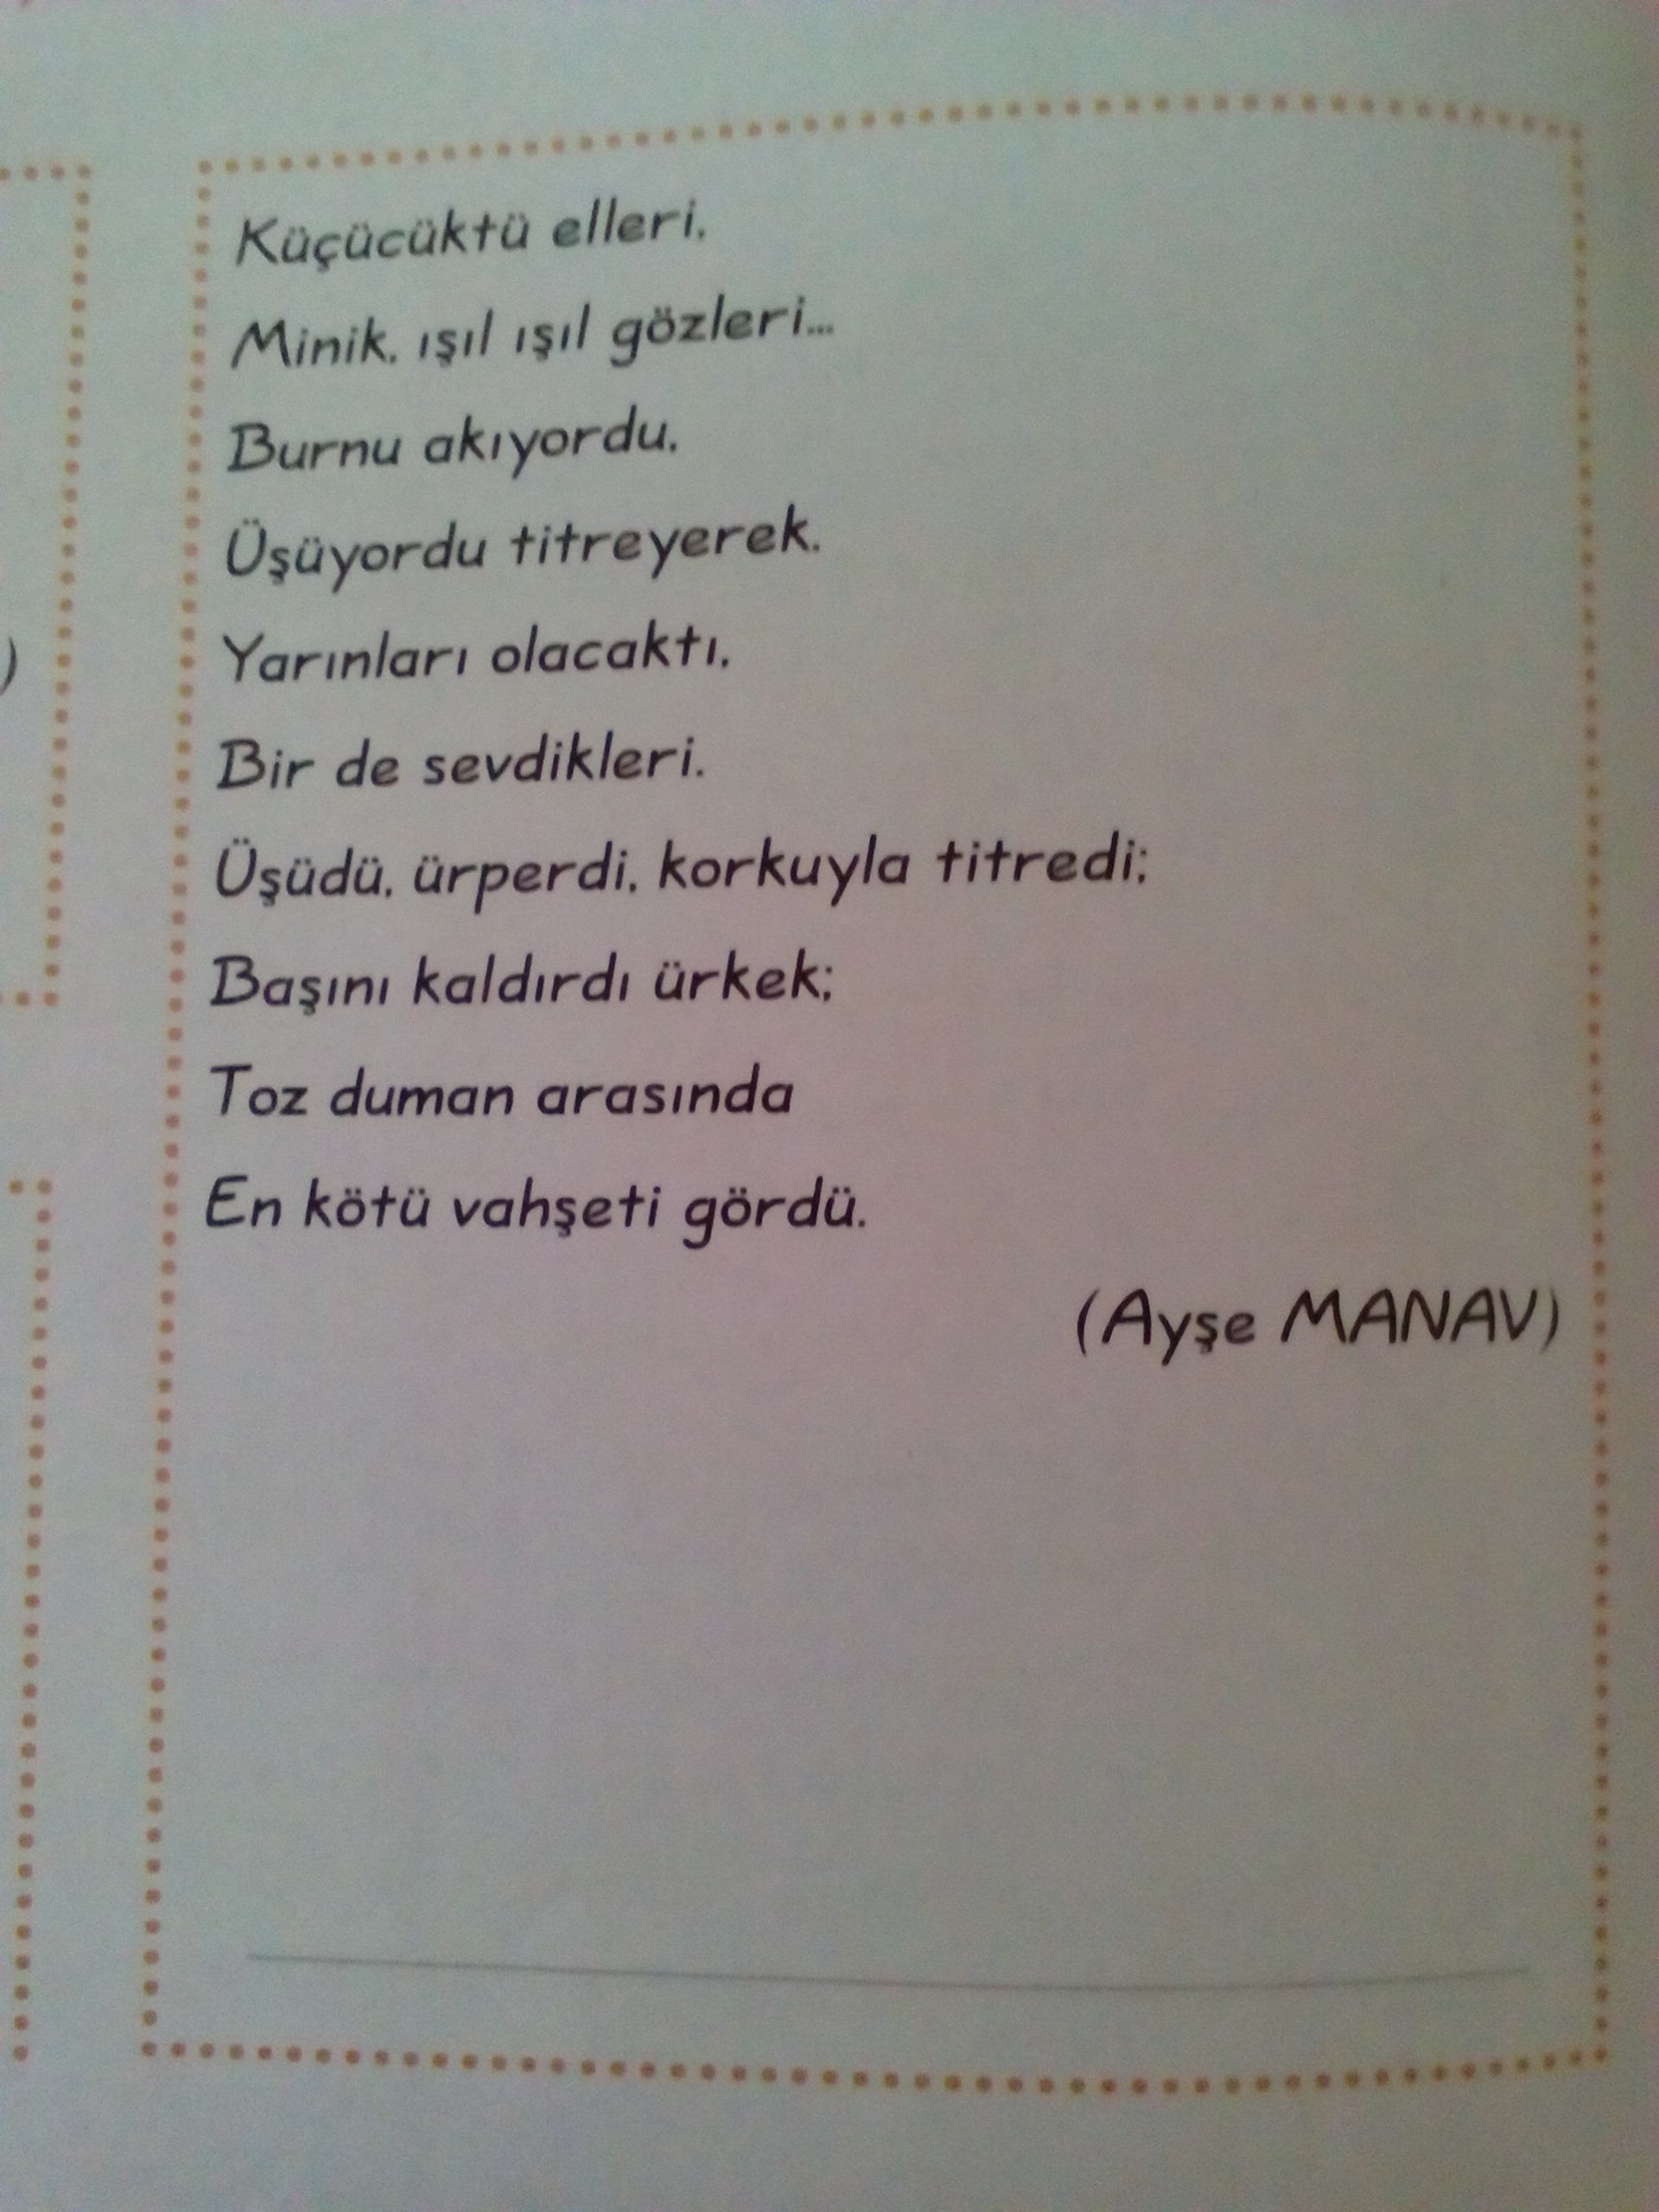 Küçücüktü elleri,
Minik, ışıl ışıl gözleri...
Burnu akıyordu,
Üşüyordu titreyerek.
Yarınları olacaktı,
Bir de sevdikleri.
Üşüdü, ürperdi, korkuyla titredi;
Başını kaldırdı ürkek;
Toz duman arasında
En kötü vahşeti gördü.
(Ayşe MANAV)
)